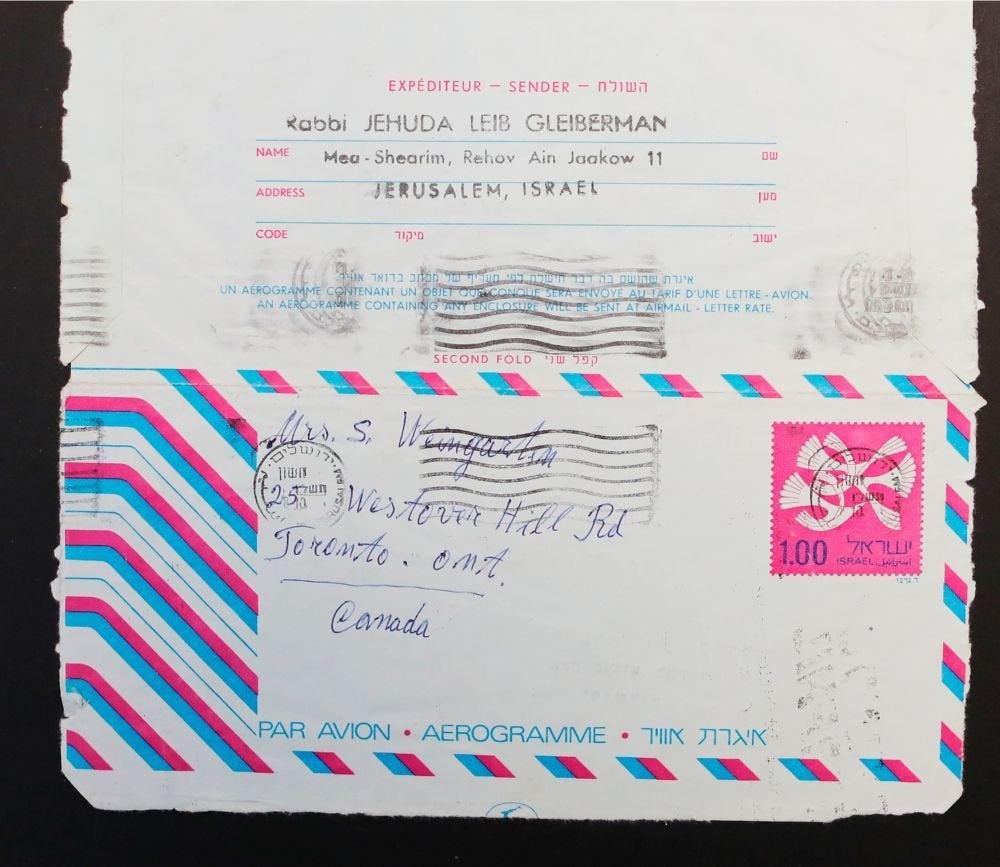 EXPÉDITEUR — SENDER — השולח
Rabbi JEHUDA LEIB GLEIBERMAN
NAME Mea - Shearim, Rehov Ain Jaakow 11 שם
ADDRESS JERUSALEM, ISRAEL מען
CODE מיקוד ישוב
איגרת שהושם בה דבר תישלח לפי תעריף של מכתב בדואר אוויר
UN AÉROGRAMME CONTENANT UN OBJET QUELCONQUE SERA ENVOYÉ AU TARIF D'UNE LETTRE - AVION.
AN AEROGRAMME CONTAINING ANY ENCLOSURE WILL BE SENT AT AIRMAIL - LETTER RATE.
SECOND FOLD קפל שני
Mrs. S. Weingarten
25 Westover Hill Rd
Toronto. Ont.
Canada
ירושלים
1.00 ישראל
ISRAEL اسرائيل
PAR AVION • AEROGRAMME • איגרת אוויר